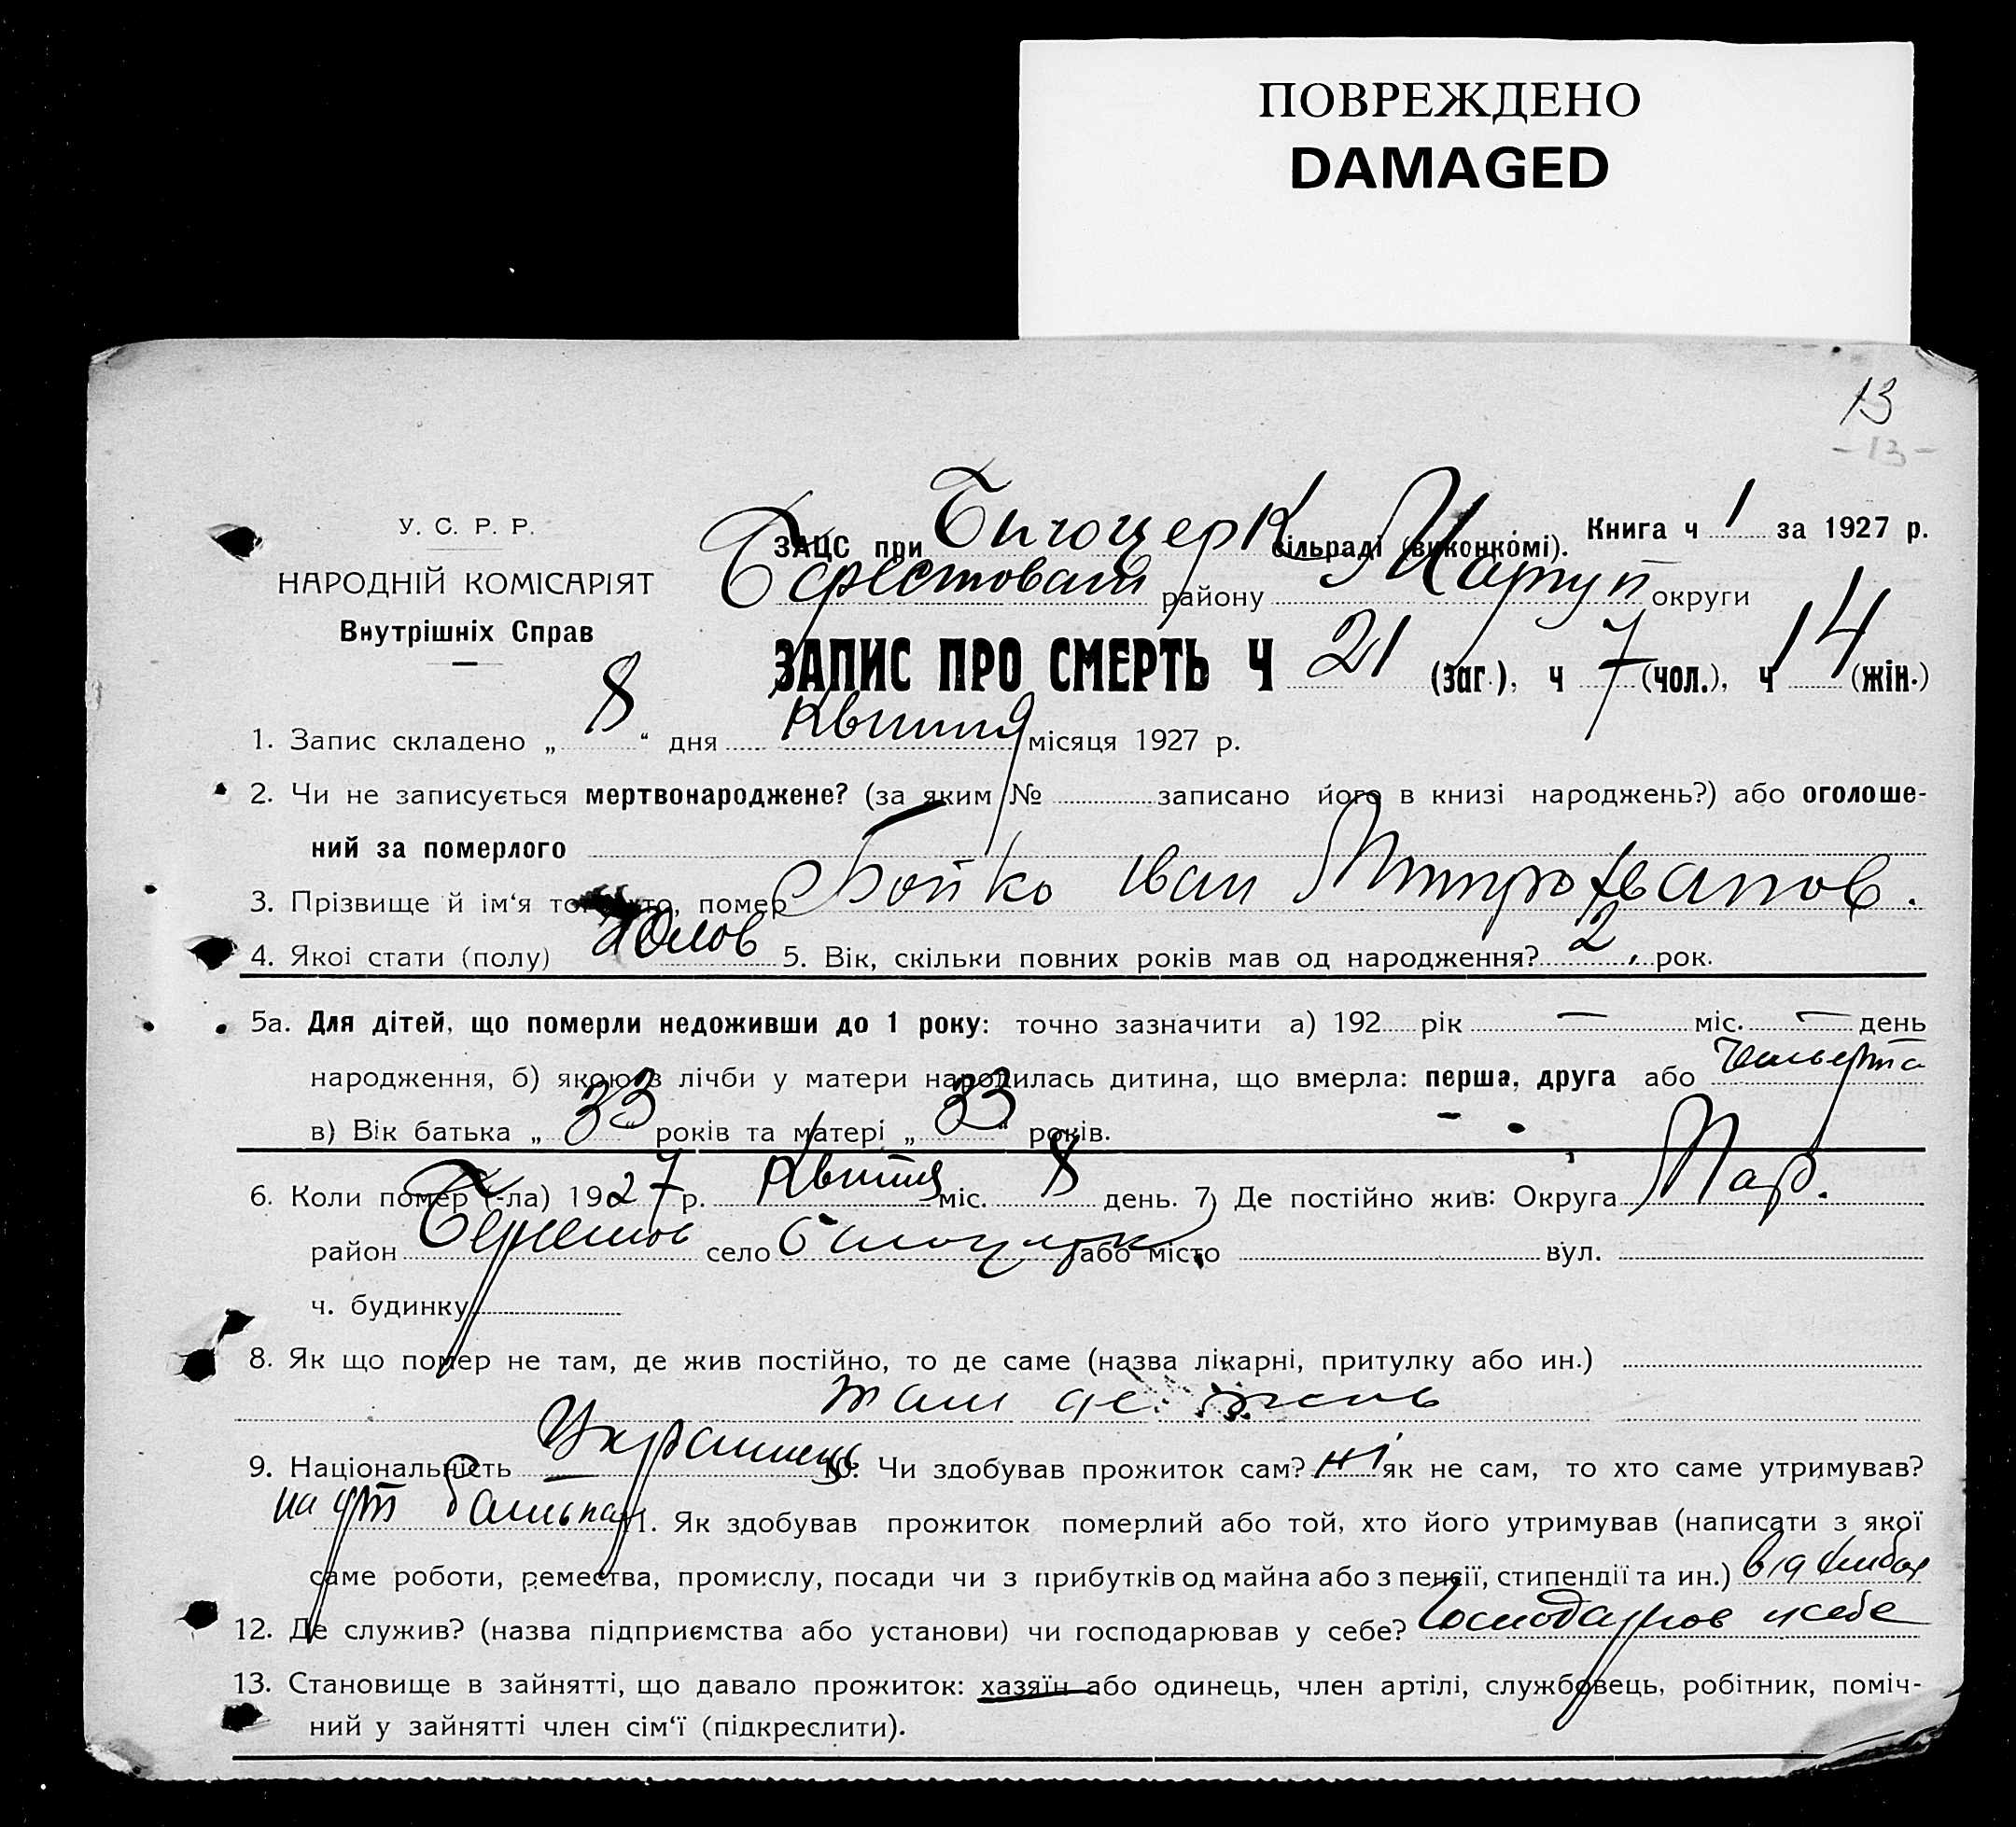 ПОВРЕЖДЕНО
DAMAGED
13
- 13 -
У. С. Р. Р.
НАРОДНІЙ КОМІСАРІЯТ
Внутрішніх Справ
ЗАЦС при Білоцерк сільраді (виконкомі). Книга ч 1 за 1927 р.
району округи
ЗАПИС ПРО СМЕРТЬ Ч 21 (заг.), ч 7 (чол.), ч 14 (жін.)
1. Запис складено „ 8 “ дня Квітня місяця 1927 р.
2. Чи не записується мертвонароджене? (за яким № записано його в книзі народжень?) або оголоше-
ний за померлого
3. Прізвище й ім'я того, хто, помер Бойко Іван Митрофанов.
4. Якої стати (полу) Чолов 5. Вік, скільки повних років мав од народження? 2 рок.
5а. Для дітей, що померли недоживши до 1 року: точно зазначити а) 192 рік — міс. — день
народження, б) якою з лічби у матери народилась дитина, що вмерла: перша, друга або четверта
в) Вік батька „ 33 “ років та матері „ 33 “ років.
6. Коли помер (-ла) 1927 р. Квітня міс. 8 день. 7) Де постійно жив: Округа
район Берестов село Білоцерк або місто вул.
ч. будинку
8. Як що помер не там, де жив постійно, то де саме (назва лікарні, притулку або ин.)
там де жив
9. Національність Українець 10. Чи здобував прожиток сам? ні як не сам, то хто саме утримував?
на утр батька 11. Як здобував прожиток померлий або той, хто його утримував (написати з якої
саме роботи, ремества, промислу, посади чи з прибутків од майна або з пенсії, стипендії та ин.) від хлібор
12. Де служив? (назва підприємства або установи) чи господарював у себе? Господарюв у себе
13. Становище в зайнятті, що давало прожиток: хазяїн або одинець, член артілі, службовець, робітник, поміч-
ний у зайнятті член сім'ї (підкреслити).